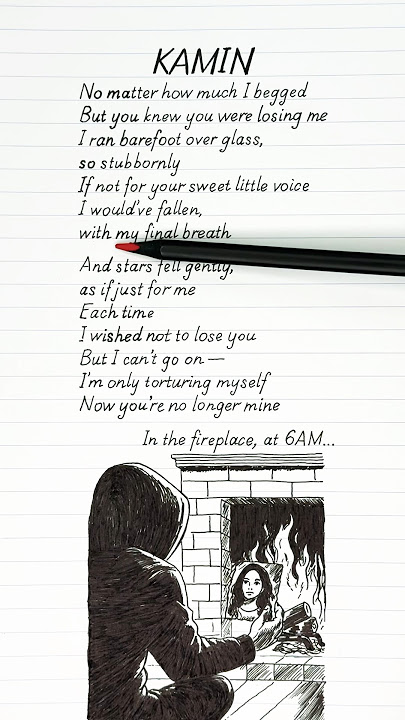 KAMIN
No matter how much I begged
But you knew you were losing me
I ran barefoot over glass,
so stubbornly
If not for your sweet little voice
I would've fallen,
with my final breath
And stars fell gently,
as if just for me
Each time
I wished not to lose you
But I can't go on—
I'm only torturing myself
Now you're no longer mine
In the fireplace, at 6AM...